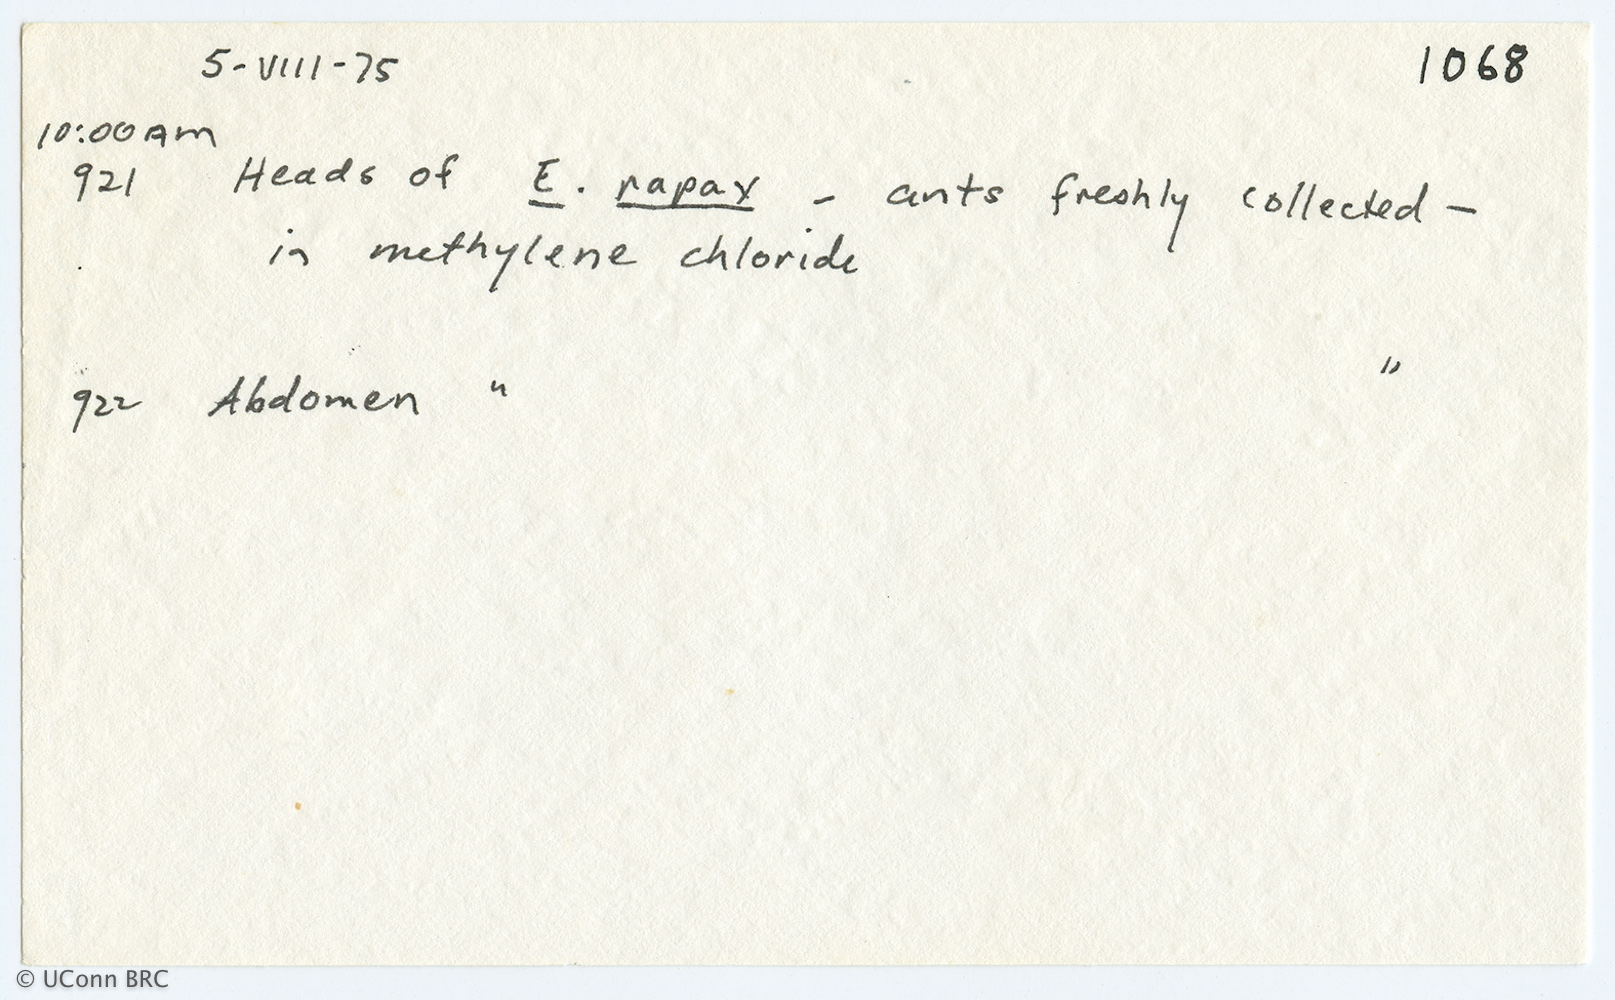 5-VIII-75 1068
10:00 AM
921 Heads of E. rapax - ants freshly collected -
in methylene chloride
922 Abdomen " "
© UConn BRC